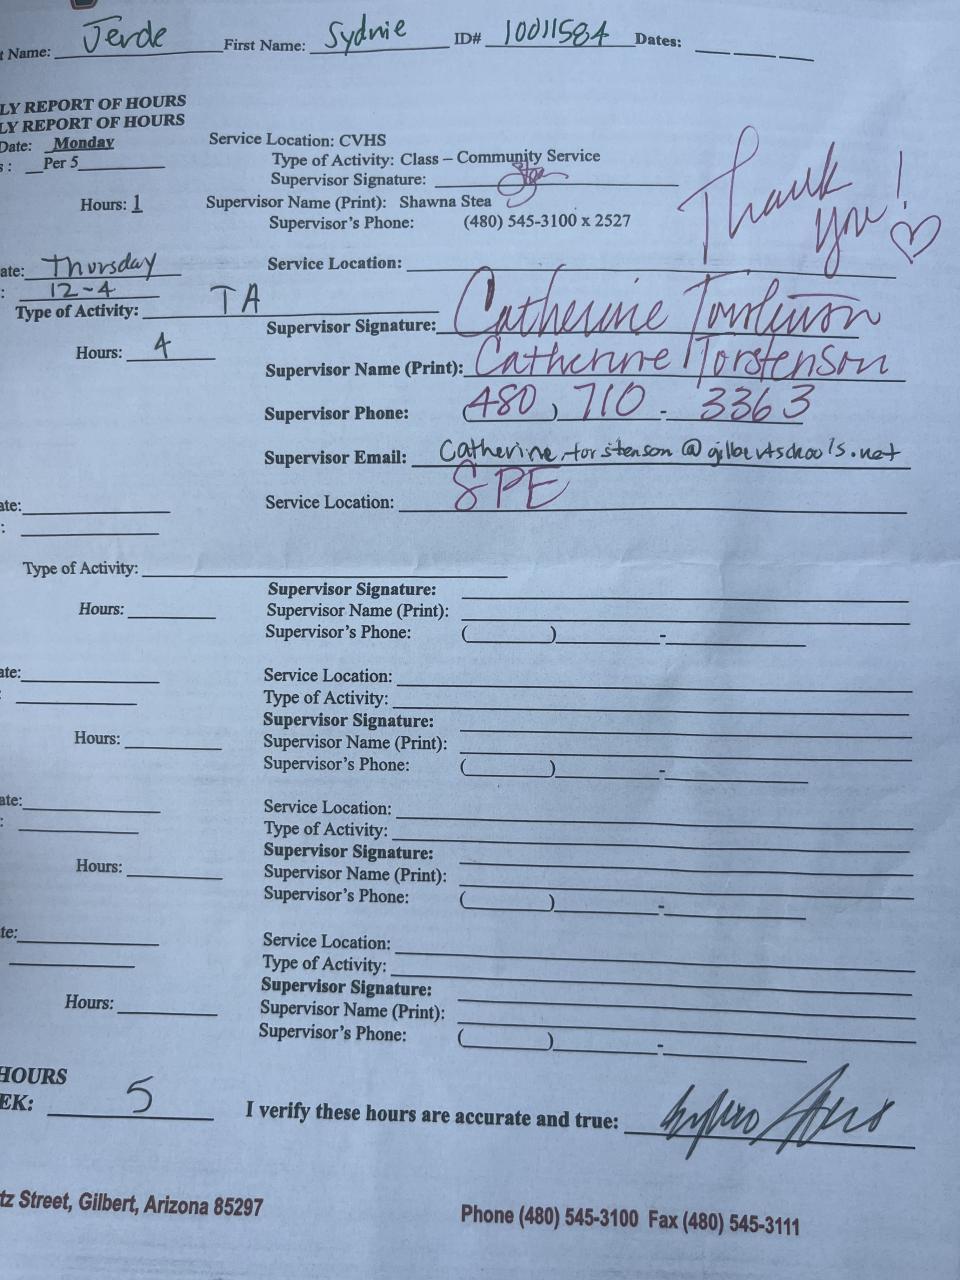 t Name: Jerde First Name: Sydnie ID# 10011584 Dates:
LY REPORT OF HOURS
LY REPORT OF HOURS
Date: Monday
s : Per 5
Hours: 1
Service Location: CVHS
Type of Activity: Class – Community Service
Supervisor Signature: Stea
Supervisor Name (Print): Shawna Stea
Supervisor's Phone: (480) 545-3100 x 2527
Thank
you! ♡
ate: Thursday
: 12-4
Type of Activity: TA
Hours: 4
Service Location:
Supervisor Signature: Catherine
Supervisor Name (Print): Catherine Torstenson
Supervisor Phone: (480) 710 - 3363
Supervisor Email: Catherine.torstenson@gilbertschools.net
Service Location: SPE
ate:
:
Type of Activity:
Hours:
Supervisor Signature:
Supervisor Name (Print):
Supervisor's Phone: ( ) -
ate:
:
Hours:
Service Location:
Type of Activity:
Supervisor Signature:
Supervisor Name (Print):
Supervisor's Phone: ( ) -
ate:
:
Hours:
Service Location:
Type of Activity:
Supervisor Signature:
Supervisor Name (Print):
Supervisor's Phone: ( ) -
te:
Hours:
Service Location:
Type of Activity:
Supervisor Signature:
Supervisor Name (Print):
Supervisor's Phone: ( ) -
HOURS
EK: 5
I verify these hours are accurate and true:
tz Street, Gilbert, Arizona 85297
Phone (480) 545-3100 Fax (480) 545-3111